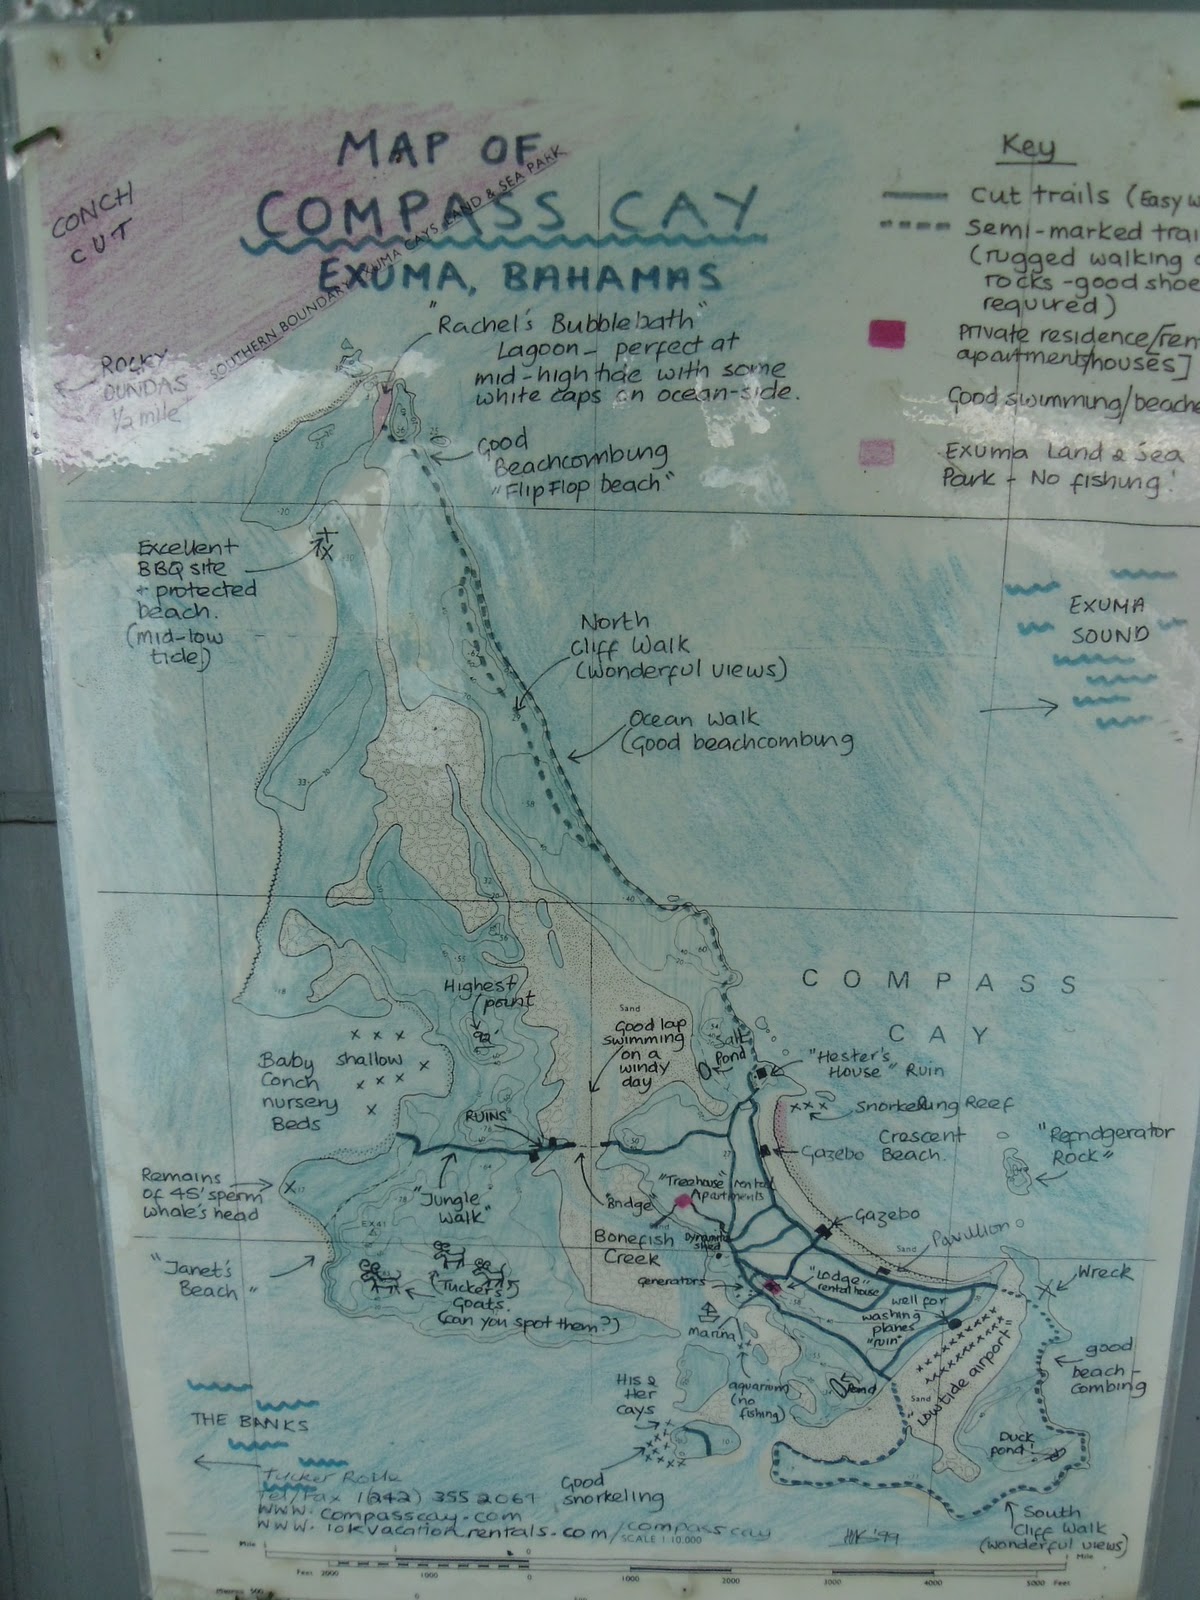 MAP OF
COMPASS CAY
EXUMA, BAHAMAS
CONCH
CUT
SOUTHERN BOUNDARY EXUMA CAYS LAND & SEA PARK
ROCKY
DUNDAS
1/2 mile
Key
Cut trails (Easy
Semi-marked
(rugged walking
rocks - good
required)
Private residence/
apartments/houses]
Good swimming/
Exuma Land & Sea
Park - No fishing!
"Rachel's Bubblebath"
Lagoon - perfect at
mid-high tide with some
white caps on ocean-side.
Good
Beachcombing
"Flip Flop beach"
Excellent
BBQ site
+ protected
beach.
(mid-low
tide)
North
Cliff Walk
(Wonderful views)
Ocean Walk
(Good beachcombing
EXUMA
SOUND
COMPASS
CAY
Highest
point
92'
Sand
Good lap
swimming
on a
windy
day
Salt
Pond
"Hester's
House" Ruin
Snorkeling Reef
Crescent
Beach.
Gazebo
"Refridgerator
Rock"
Baby shallow
Conch
nursery
Beds
RUINS
Remains
of 45' sperm
whale's head
"Jungle
Walk"
"Bridge"
"Treehouse" rental
Apartments
Bonefish
Creek
Dynamite
shed
Gazebo
Pavillion
Sand
Wreck
"Janet's
Beach"
Tucker's
Goats.
(can you spot them?)
generators
"Lodge"
rental house
well for
washing
planes
"ruin"
Marina
aquarium
(no
fishing)
Pond
Sand
"Low tide airport"
good
beach-
combing
His &
Her
Cays
Duck
pond!
THE BANKS
Good
snorkeling
South
Cliff Walk
(wonderful views)
Tucker Rolle
Tel/Fax 1(242) 355 2064
www.compasscay.com
www.10kvacationrentals.com/compasscay
SCALE 1:10,000
Mile
Mile
Feet 2000 1000 0 1000 2000 3000 4000 5000 Feet